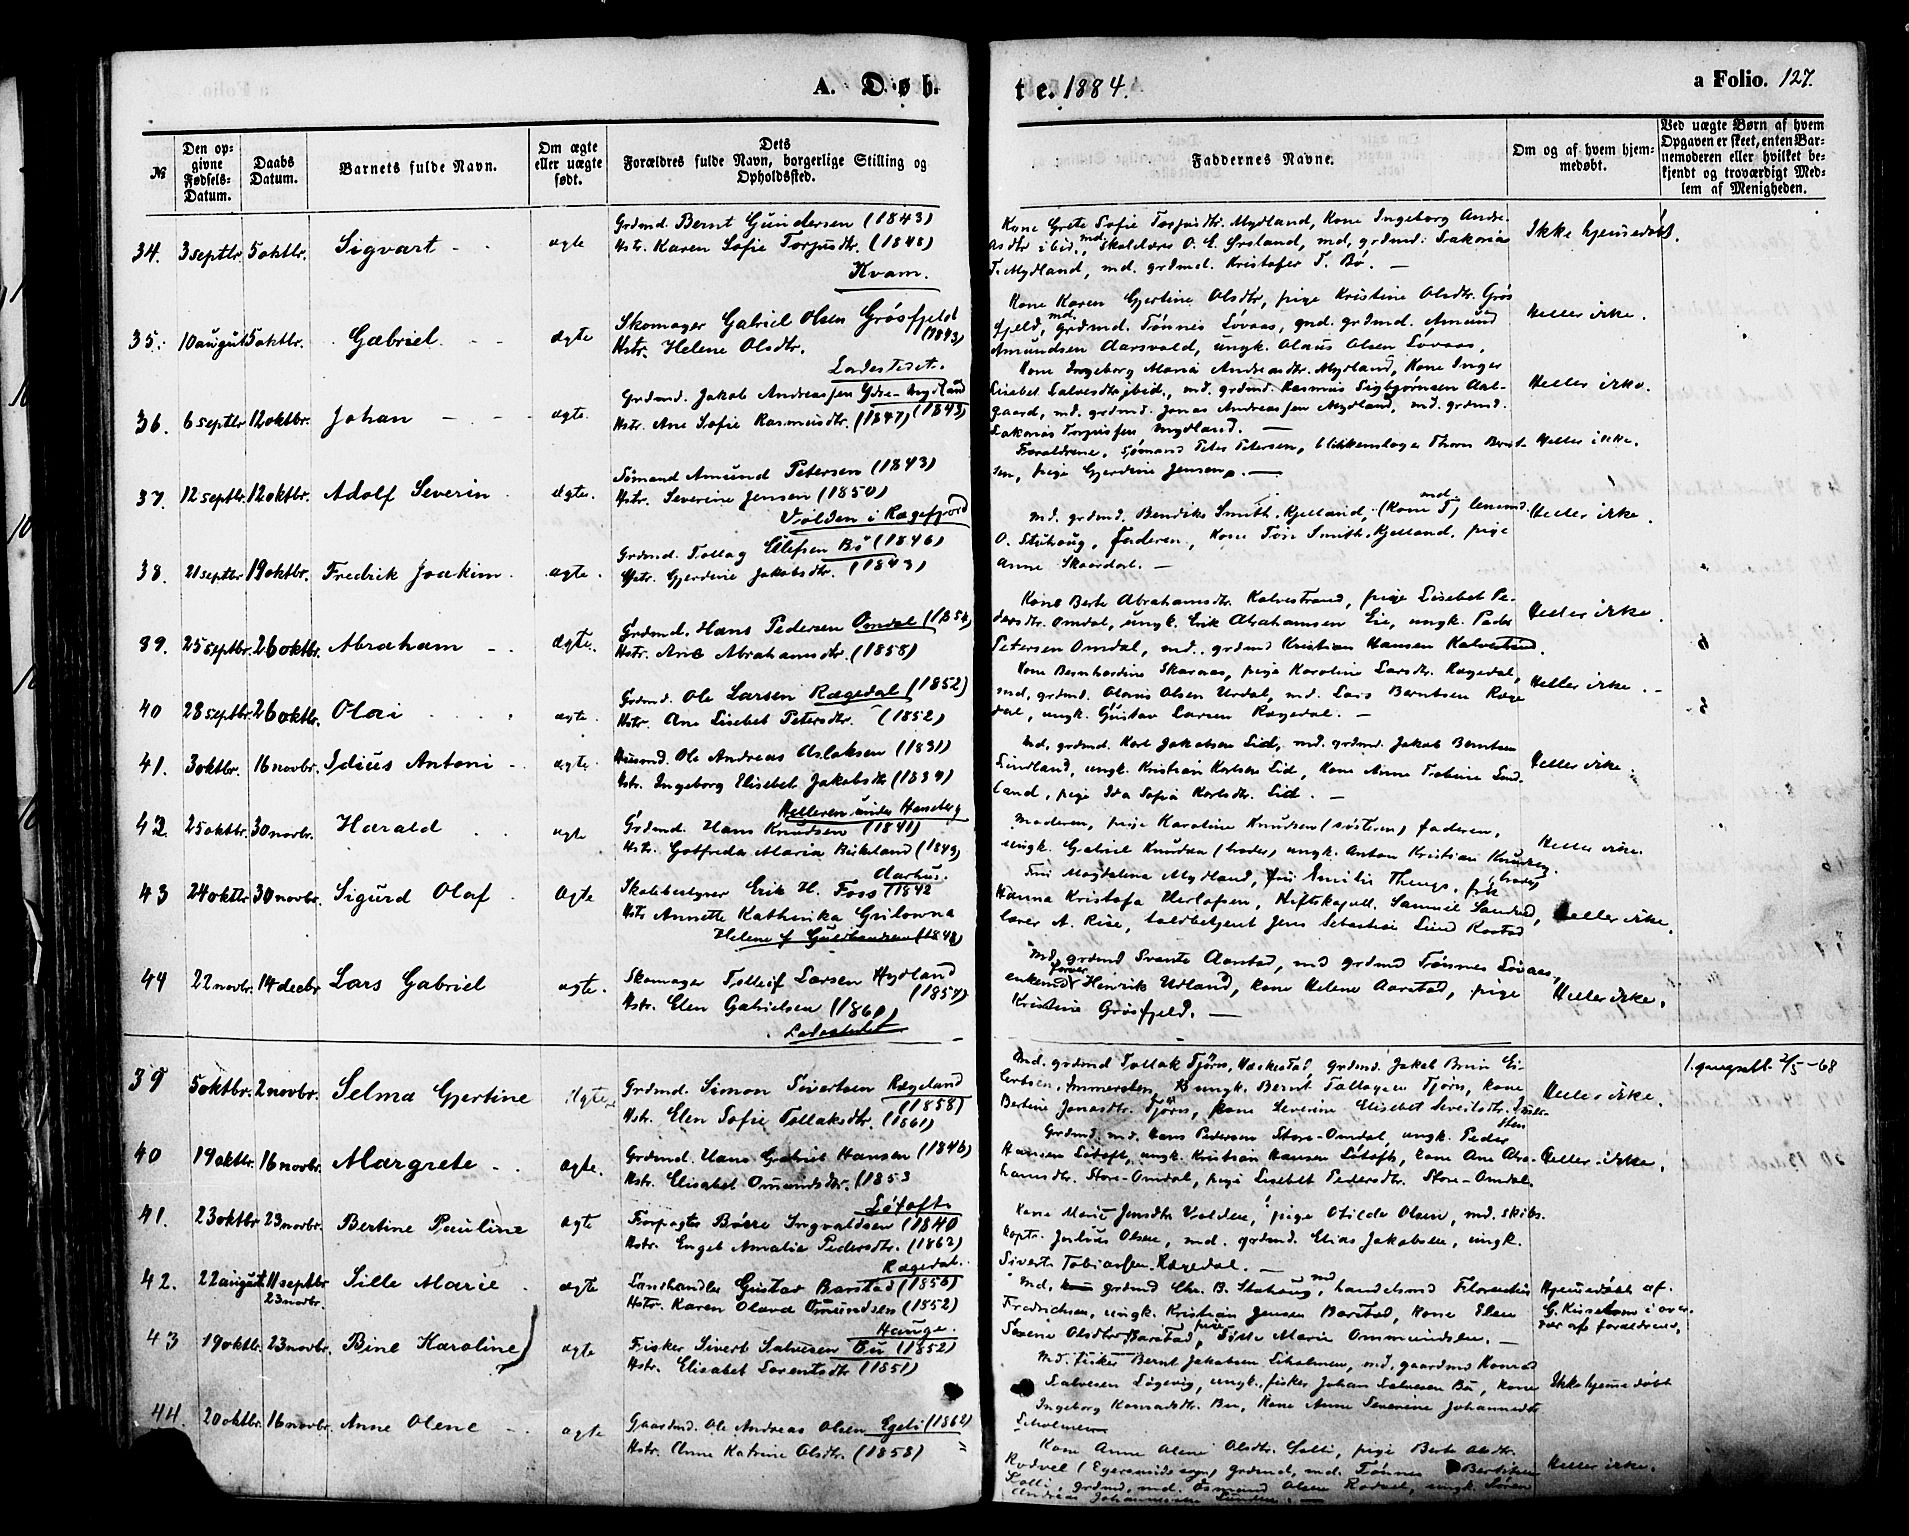 A. Døb
te. 1884.
a Folio. 127.
№
Den op-
givne
Fødsels-
Datum.
Daabs
Datum.
Barnets fulde Navn.
Om ægte
eller uægte
født.
Dets
Forældres fulde Navn, borgerlige Stilling og
Opholdssted.
Faddernes Navne.
Om og af hvem hjem-
medøbt.
Ved uægte Børn af hvem
Opgaven er skeet, enten Bar-
nemoderen eller hvilket be-
kjendt og troværdigt Med-
lem af Menigheden.
34. 3 septbr 5 oktbr. Sigvart ægte
Grdmd Bernt Gundersen (1843)
Hstr. Karen Sofie Torjusdtr. (1848)
Kvam.
Kone Grete Sofie Torjusdtr. Mydland, Kone Ingeborg Andre-
asdtr ibid., md. Skolelærer O. E. Ørsland, md. grdmd. Sakarias
T. Mydland, md. grdmd. Kristofer T. Bø.
Ikke hjemmedøbt.
35. 10 august 5 oktbr. Gabriel ægte
Skomager Gabriel Olsen Grøsfjeld
(1843)
Hstr. Helene Olsdtr.
Ladestedet.
Kone Karen Gjertine Olsdtr, pige Kristine Olsdtr. Grøs
fjeld, md. grdmd. Tønnes Løvaas, md. grdmd. Amund
Amundsen Aarsvold, ungk. Olaus Olsen Løvaas.
Heller ikke.
36. 6 septbr 12 oktbr. Johan ægte.
Grdmd. Jakob Andreassen Ydre-Mydland
(1843)
Hstr. Ane Sofie Rasmusdtr. (1847)
Kone Ingeborg Maria Andreasdtr. Mydland, Kone Inger
Lisebet Salvesdtr ibid., md. grdmd. Rasmus Sigbjørnsen Aal-
gaard, md. grdmd. Jonas Andreassen Mydland, md. grdmd.
Sakarias Torjussen Mydland.
Heller ikke.
37. 12 septbr. 12 oktbr. Adolf Severin ægte.
Sømand Amund Petersen (1843)
Hstr. Severine Jensen (1850)
Volden i Rægefjord
Forældrene, sømand Peter Petersen, blikkenslager Thorn Bernt-
sen, pige Gjerdine Jensen.
Heller ikke.
38. 21 septbr 19 oktbr. Fredrik Joakim. ægte.
Grdmd. Tollag Ellefsen Bø (1846)
Hstr. Gjerdine Jakobsdtr. (1843)
md. grdmd. Bendiks Smith Kjelland,
O. Stuhaug, Faderen, Kone Smith Kjelland, pige
Anne Skaardal.
Heller ikke.
39. 25 septbr. 26 oktbr. Abraham ægte.
Grdmd. Hans Pedersen Omdal (1854)
Hstr. Ane Abrahamsdtr. (1858)
Kone Berte Abrahamsdtr Kalvestrand, pige Lisebet Pe-
dersdtr. Omdal, ungk. Erik Abrahamsen Eie, ungk. Peder
Petersen Omdal, md. grdmd Kristian Hansen Kalvestrand.
Heller ikke.
40 28 septbr. 26 oktbr. Olai ægte.
Grdmd. Ole Larsen Rægedal (1852)
Hstr. Ane Lisebet Petersdtr. (1852)
Kone Bernhardine Skaraas, pige Karoline Larsdtr. Rægedal,
md, grdmd. Olaus Olsen Urdal, md. Lars Berntsen Ræge
dal, ungk. Gustav Larsen Rægedal.
Heller ikke.
41. 3 oktbr. 16 novbr. Idius Antoni ægte.
Husmd. Ole Andreas Aslaksen (1831)
Hstr. Ingeborg Elisebet Jakobsdtr (1834)
Helleren under Hauseberg
md. grdmd. Karl Jakobsen Lid, md. grdmd. Jakob Berntsen
Lindland, ungk. Kristian Karlsen Lid, Kone Anne Tobine Lind-
land, pige Ida Sofia Karlsdtr. Lid.
Heller ikke.
42. 25 oktbr. 30 novbr. Harald ægte
Grdmd. Hans Knudsen (1841)
Hstr. Gotfreda Maria Birkeland (1843)
Aarhus.
Moderen, pige Karoline Knudsen (søsteren) faderen,
ungk. Gabriel Knudsen (broder) ungk. Anton Kristian Knudsen
(broder)
Heller ikke.
43 24 oktbr 30 novbr. Sigurd Olaf ægte
Skolebestyrer Erik H. Foss 1842
Hstr Annette Kathinka
Helene f. Guldbrandsen (1848)
Fru Magdalina Mydland, fru Emilie Thengs, frk
Hanna Kristofa Herlofsen, Stiftskapell. Samuel
lærer A. Rise, toldbetjent Jens Sebastian Lund
Heller ikke.
44 22 novbr. 14 decbr Lars Gabriel ægte.
Skomager Tolleif Larsen Mydland
(1857)
Hstr. Elen Gabrielsen (1860)
Ladestedet
Md. grdmd Svante Aarstad, md grdmd Tønnes Løvaas,
enkemd Henrik Urland, kone Helene Aarstad, pige
Kristine Grøsfjeld.
Heller ikke.
39 5 oktbr. 2 novbr. Selma Gjertine ægte
Grdmd. Simon Sivertsen Rægeland
(1858)
Hstr. Elen Sofie Tollaksdtr. (1861)
Md. grdmd Tollak Tjørn, Heskestad, grdmd. Jakob Brun Ei-
ertsen, ungk. Bernt Tollagsen Tjørn, kone
Bertine Jonasdtr. Tjørn, kone Severine Elisebet
Heller ikke.
1. gangsatt. 2/5-68
40 19 oktbr. 16 novbr. Margrete ægte.
Grdmd. Hans Gabriel Hansen (1846)
Hstr. Elisabet Omundsdtr. (1853
Løtoft.
Grdmd. md. Hans Pedersen Store-Omdal, ungk. Peder
Hansen Løtoft, ungk. Kristian Hansen Løtoft, kone Ane Abra-
hamsdtr. Store-Omdal, pige Lisebet Pedersdtr. Store-Omdal.
Heller ikke.
41. 23 oktbr 23 novbr. Bertine Pauline ægte
Forpagter Børre Ingvaldsen (1840
Hstr. Engel Amalie Pedersdtr. (1862)
Rægedal.
Kone Marie Jensdtr Volden, pige Otilde Olsen, md. skibs-
kapt. Julius Olsen, md. grdmd. Elias Jakobsen, ungk.
Siverts Tobiassen Rægedal.
42. 22 august 11 septbr
23 novbr. Sille Marie ægte
Landhandler Gustav Barstad (1856)
Hstr. Karen Olava Omundsen (1852)
Hauge.
Md. grdmd Chr. B. Stuhaug, md handelsmd Florentin
Fredrichsen, ungk. Kristian Jensen Barstad, kone Elen
Serene Olsdtr Barstad, pige Sille Marie Ommundsen.
Hjemmedøbt af
G. i over-
vær af forældrene.
43 19 oktbr. 23 novbr. Bine Karoline ægte
Fisker Sivert Salvesen Bu (1852)
Hstr. Elisabet Sørensdtr (1851)
Md. fisker Bernt Jakobsen Liholmen, md. gaardmd Konrad
Salvesen Søgevig, ungk. fisker Johan Salvesen Bu, kone
Ingeborg Konradsdtr. Bu, Kone Anne Severine Johannesdtr
Liholmen
Ikke hjemmedøbt
44. 20 oktbr. 16 novbr. Anne Olene ægte
Gaardmd. Ole Andreas Olsen Egeli (1862)
Hstr. Anne Katrine Olsdtr. (1858)
Kone Anne Olene Olsdtr. Solli, pige Berte Olsdtr.
Rodvel (Egersunds sogn) grdmd, md. Tønnes Berthsen
Solli, grdmd, md. Osmund Olsen Rodvel, ungk. Søren
Andreas Johannessen
Heller ikke.